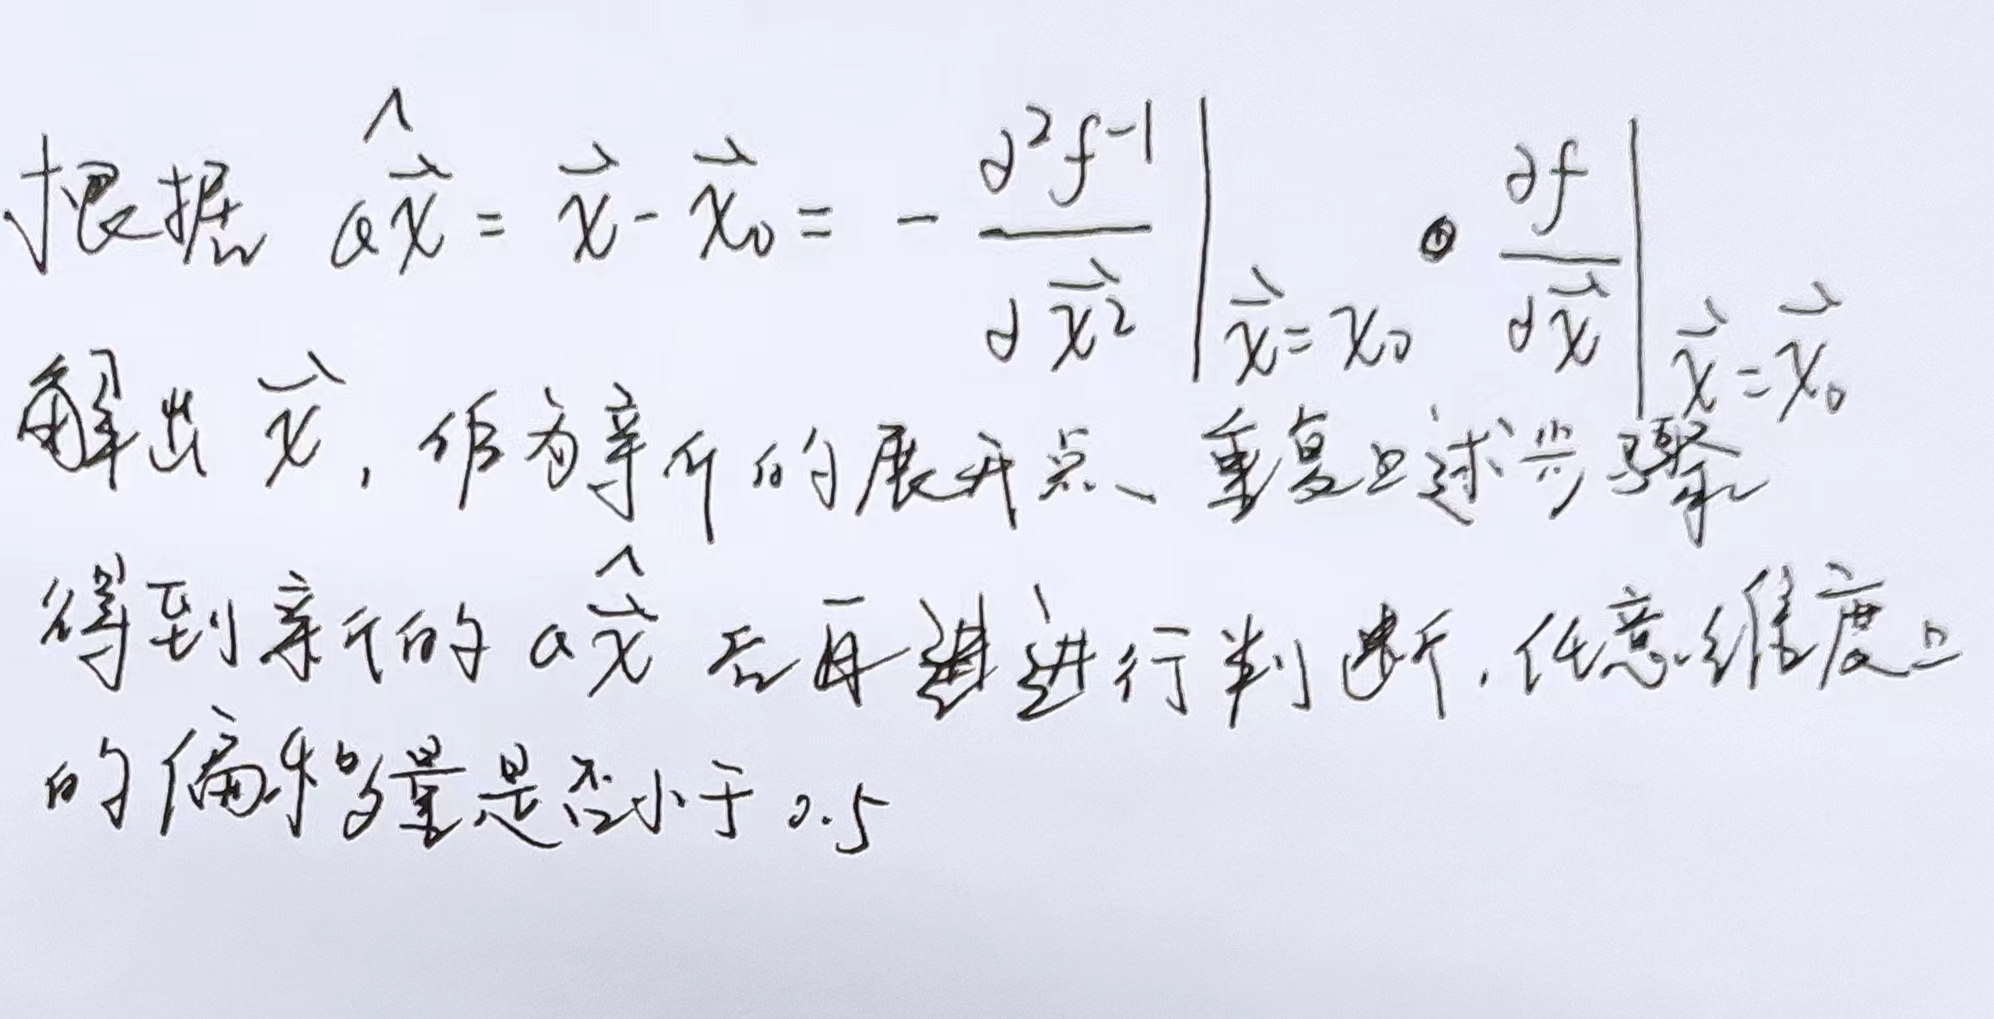 根据 $\hat{a\vec{x}} = \vec{x} - \vec{x}_0 = -\frac{\partial^2 f^{-1}}{\partial \vec{x}^2}\Big|_{\vec{x}=x_0} \cdot \frac{\partial f}{\partial \vec{x}}\Big|_{\vec{x}=\vec{x}_0}$
解出 $\vec{x}$, 作为新的展开点、重复上述步骤
得到新的 $\hat{a\vec{x}}$ 后再进行判断,任意维度上
的偏移量是否小于 0.5